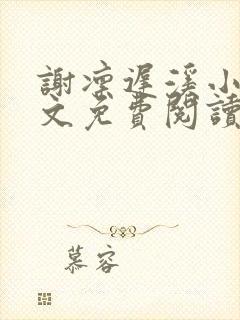 謝凛遲溪小
文免費閱讀
慕容